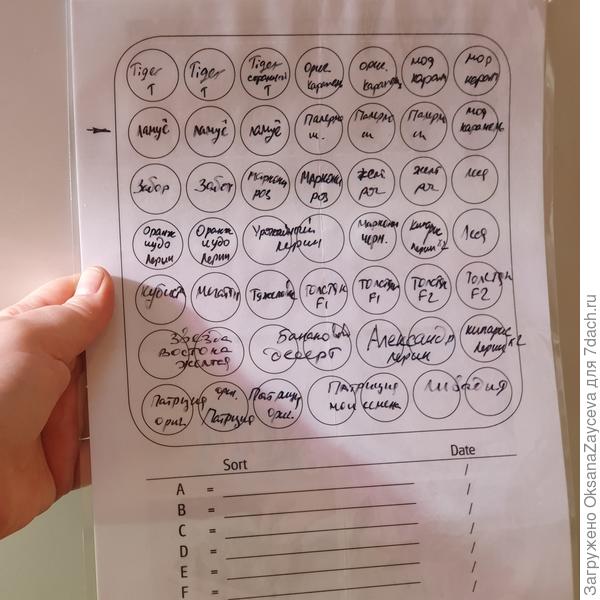 Tiger Т Tiger Т Tiger Т ориг. карамель ориг. карамель моя карам мор карам
Ламуё Ламуё Ламуё Палермо ш. Палермо ш Палермо ш моя карамель
Забор Забот Маркони роз Маркони роз желт рог желт рог Леся
Оранж чудо лерии Оранж чудо лерии Урожайный лерии Маркони черн. кипарис лерии F2 Леся
Кубист Мегатон Тяжелов Толстяк F1 Толстяк F1 Толстяк F2 Толстяк F2
Звезда востока желтая Банано десерт Александр лерии кипарис лерии F2
Патриция ориг. Патриция ориг. Патриция ориг. Патриция мои семена либадия
Sort Date
A = /
B = /
C = /
D = /
E = /
F = /
Загружено OksanaZayceva для 7dach.ru